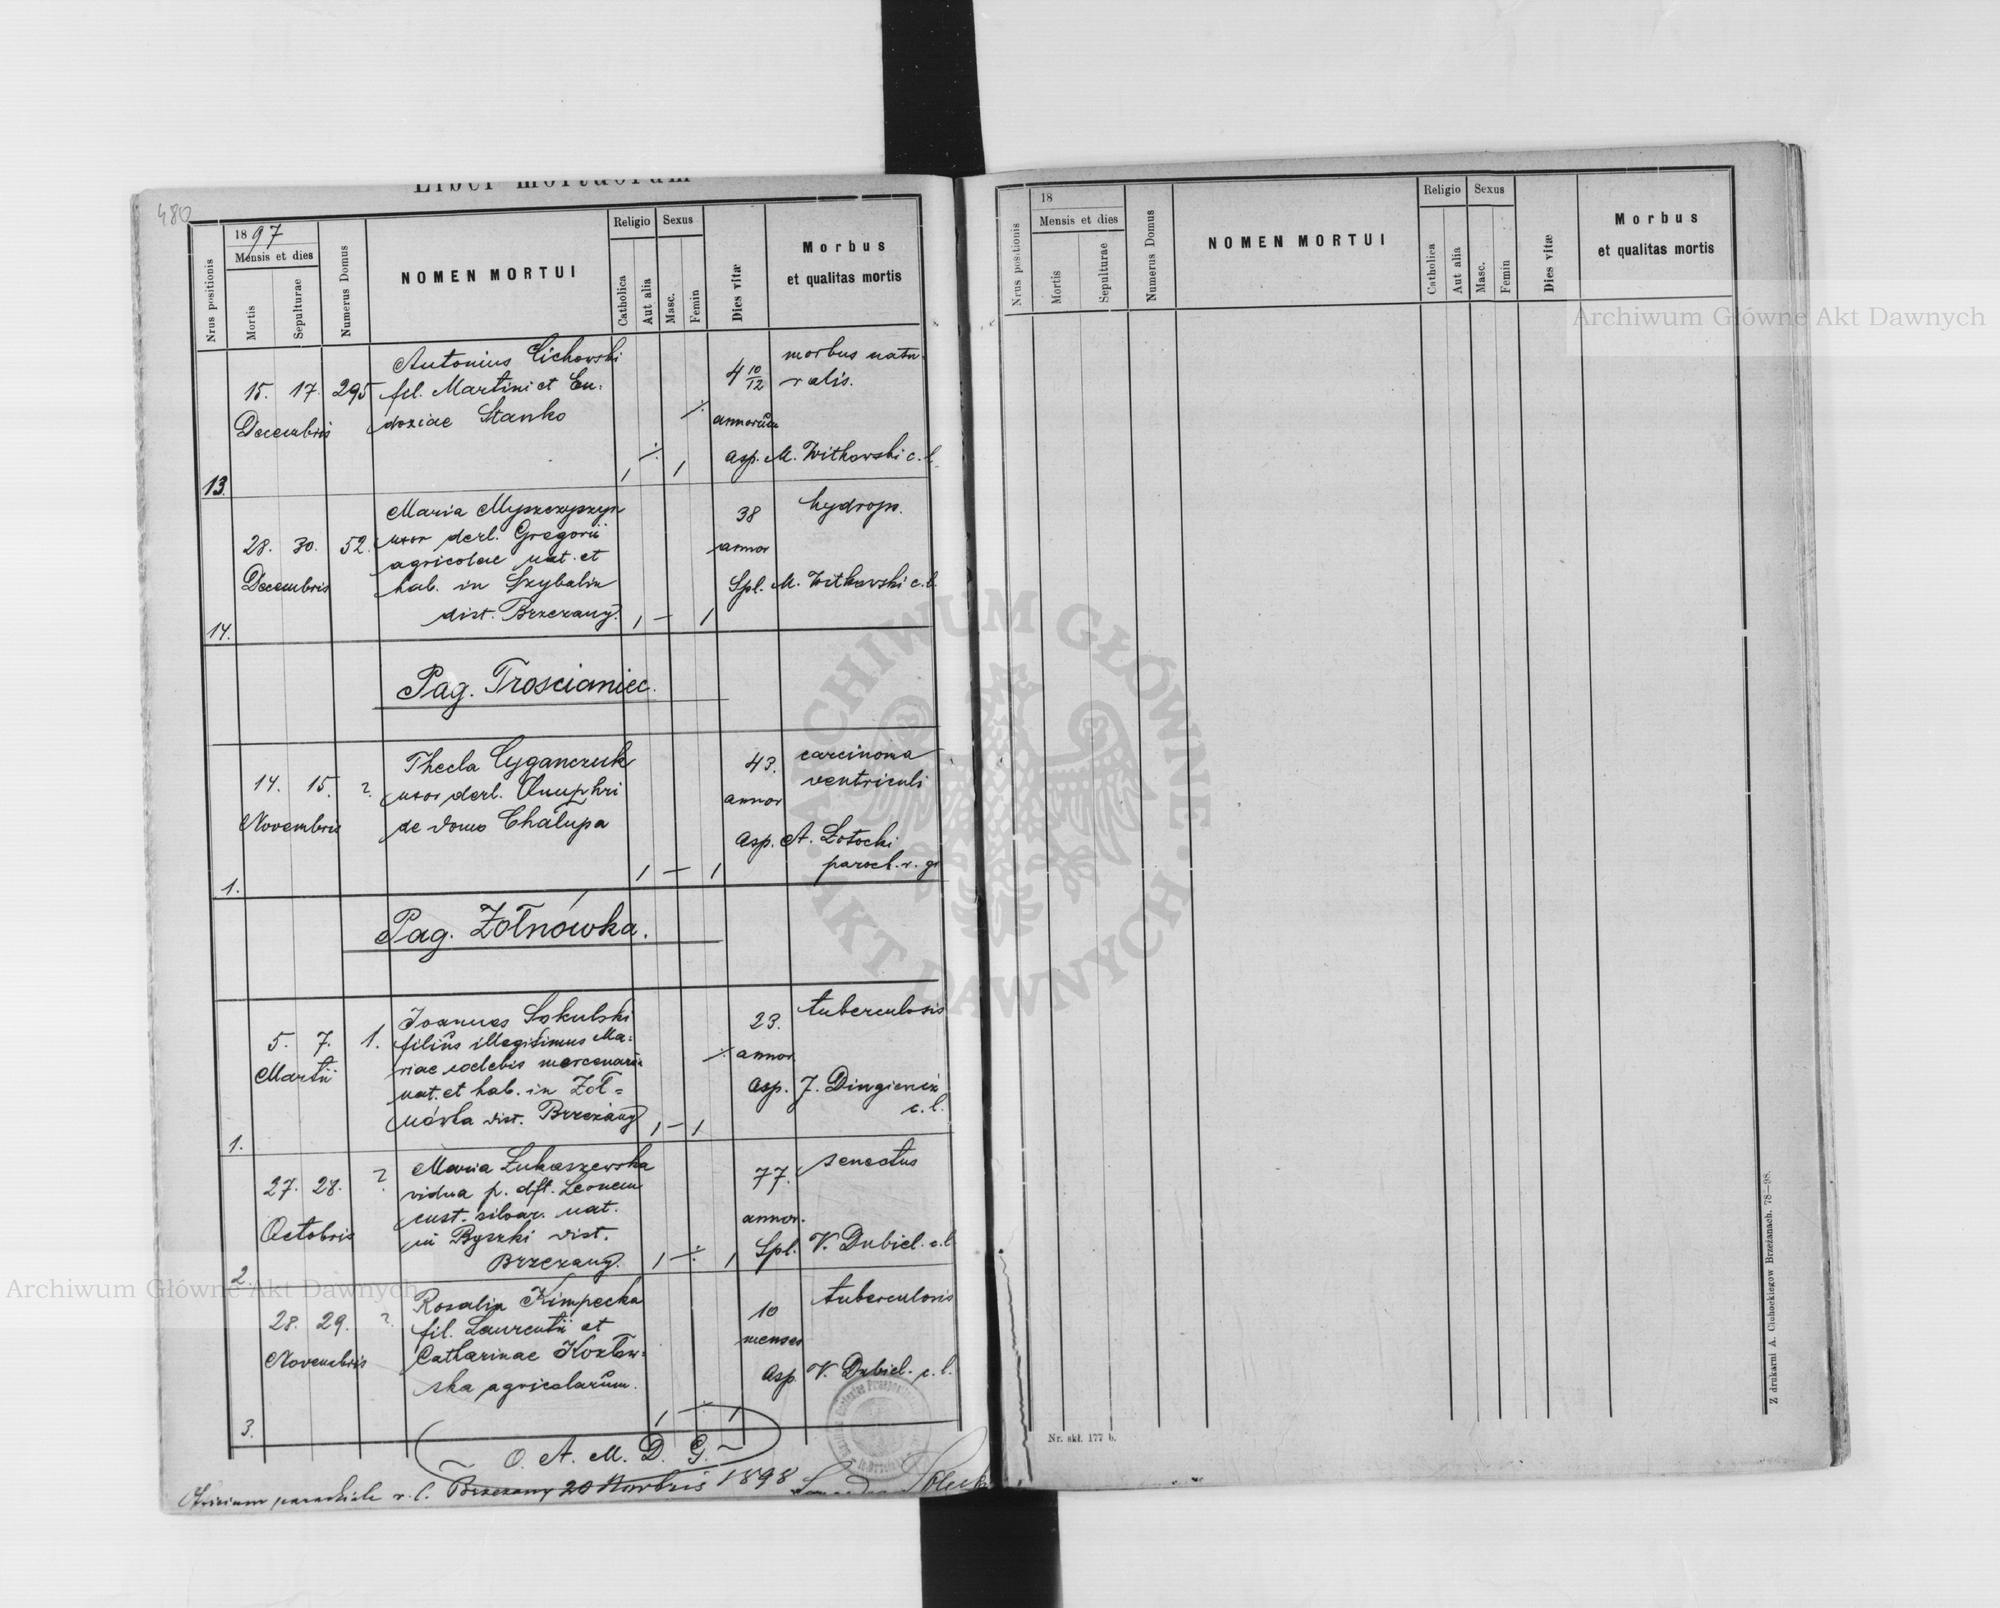 480
Liber mortuorum
Nrus positionis
1897
Mensis et dies
Mortis
Sepulturae
Numerus Domus
NOMEN MORTUI
Religio
Catholica
Aut alia
Sexus
Masc.
Femin
Dies vitæ
Morbus
et qualitas mortis
Antonius Cichowski
fil. Martini et Eu-
doxiae Stanko
15. 17. 295
Decembris
4 10/12
annorum
morbus natu-
ralis.
asp. M. Witkowski c. l.
13.
Maria Myszczyszyn
uxor derl. Gregorii
agricolae nat. et
hab. in Szybalin
dist. Brzezany.
28. 30. 52.
Decembris
38
annor
hydrops.
Spl. M. Witkowski c. l.
14.
Pag. Troscianiec.
Thecla Cyganczuk
uxor derl. Onuphri
de domo Chalupa
14. 15. ?
Novembris
43.
annor
carcinoma
ventriculi
asp. A. Zotocki
paroch. r. gr
1.
Pag. Żołnówka.
Joannes Sokulski
filius illegitimus Ma-
riae coelebis mercenari
nat. et hab. in Żoł=
nówka dist. Brzeżany
5. 7. 1.
Martii
23.
annor.
tuberculosis
asp. J. Dingiewicz
c. l.
1.
Maria Łukaszewska
vidua p. dft. Leonem
cust. silvar. nat.
in Byszki dist.
Brzezany.
27. 28. ?
Octobris
77.
annor.
senectus
Spl. V. Dubiel. c. l
2.
Rosalia Kimpecka
fil. Laurentii et
Catharinae Kozłow-
ska agricolarum.
28. 29. ?
Novembris
10
menses
tuberculosis
asp. V. Dubiel. c. l.
3.
O. A. M. D. G.
parochiale r. l. Brzezany 20 1898
Nrus positionis
18
Mensis et dies
Mortis
Sepulturae
Numerus Domus
NOMEN MORTUI
Religio
Catholica
Aut alia
Sexus
Masc.
Femin
Dies vitæ
Morbus
et qualitas mortis
Nr. skł. 177 b.
Z drukarni A. Ciuhockiegow Brzeżanach. 78—98.
Archiwum Główne Akt Dawnych
Archiwum Główne Akt Dawnych
ARCHIWUM GŁÓWNE · AKT DAWNYCH ·